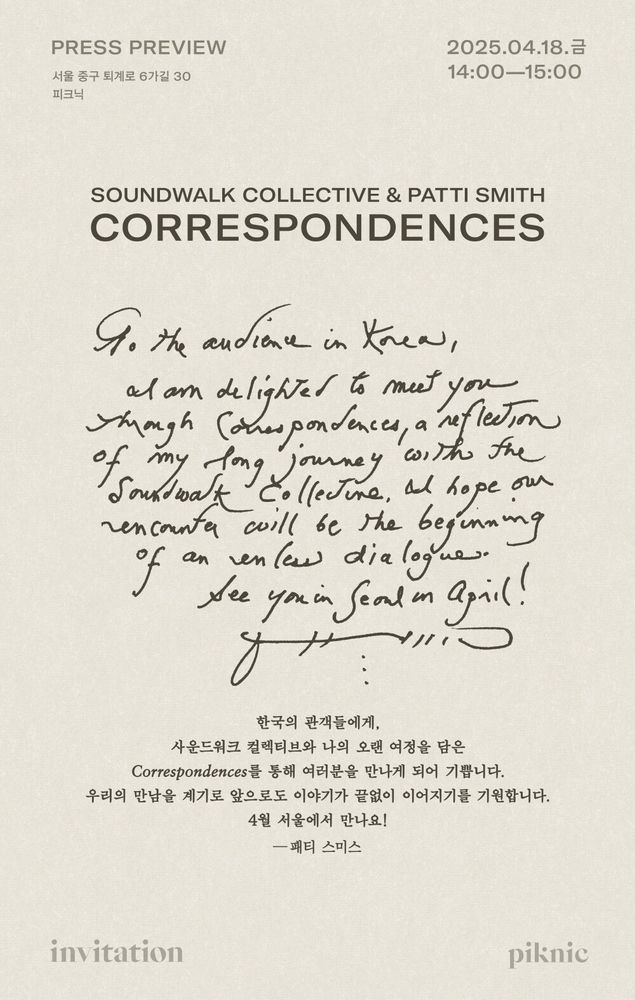 PRESS PREVIEW
서울 중구 퇴계로 6가길 30
피크닉
2025.04.18.금
14:00—15:00
SOUNDWALK COLLECTIVE & PATTI SMITH
CORRESPONDENCES
To the audience in Korea,
I am delighted to meet you
through Correspondences, a reflection
of my long journey with the
Soundwalk Collective. I hope our
rencounter will be the beginning
of an endless dialogue.
See you in Seoul in April!
한국의 관객들에게,
사운드워크 컬렉티브와 나의 오랜 여정을 담은
Correspondences를 통해 여러분을 만나게 되어 기쁩니다.
우리의 만남을 계기로 앞으로도 이야기가 끝없이 이어지기를 기원합니다.
4월 서울에서 만나요!
—패티 스미스
invitation
piknic